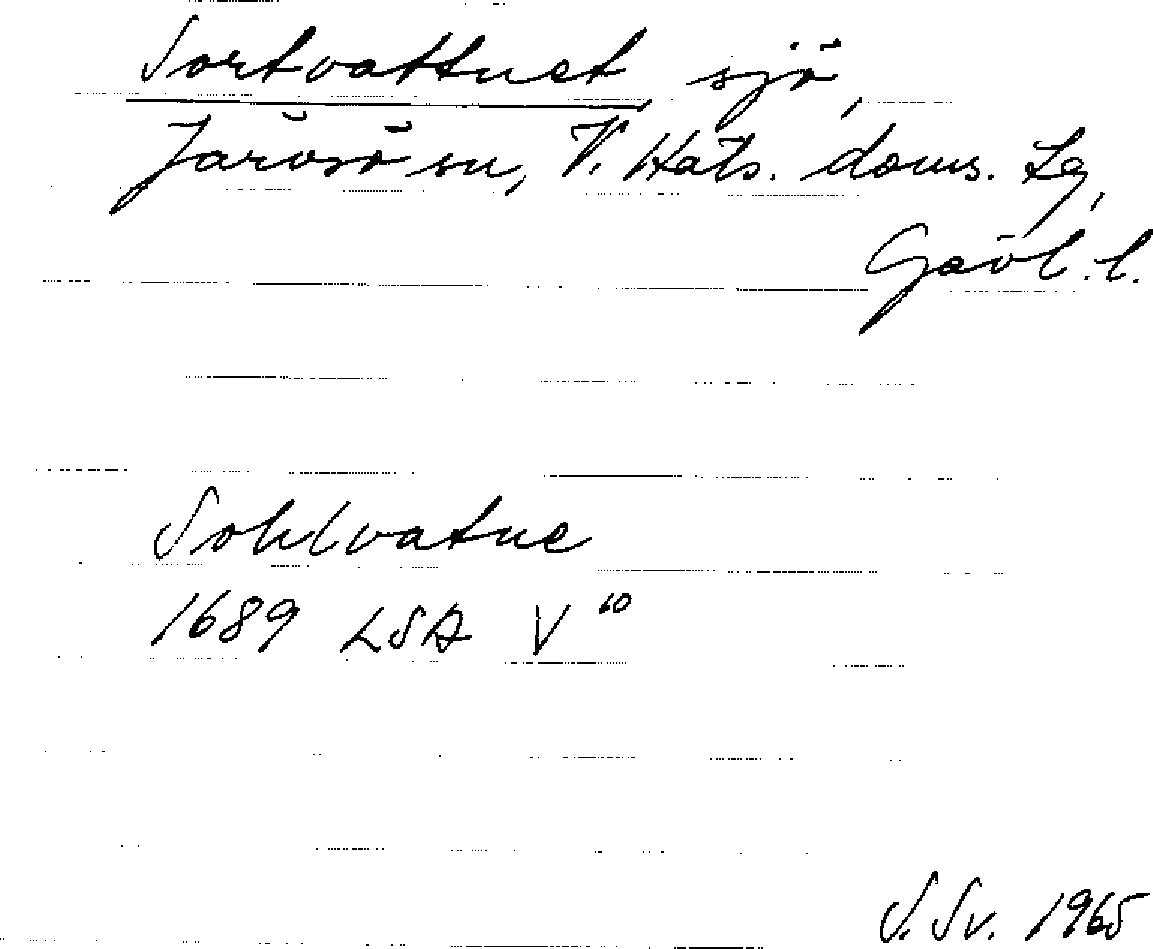 Sortvattnet, sjö,
Järvsö sn, V. Häls. doms. Lg,
Gävl. l.
Sohlvatne
1689 LSA V 60
S. Sv. 1965